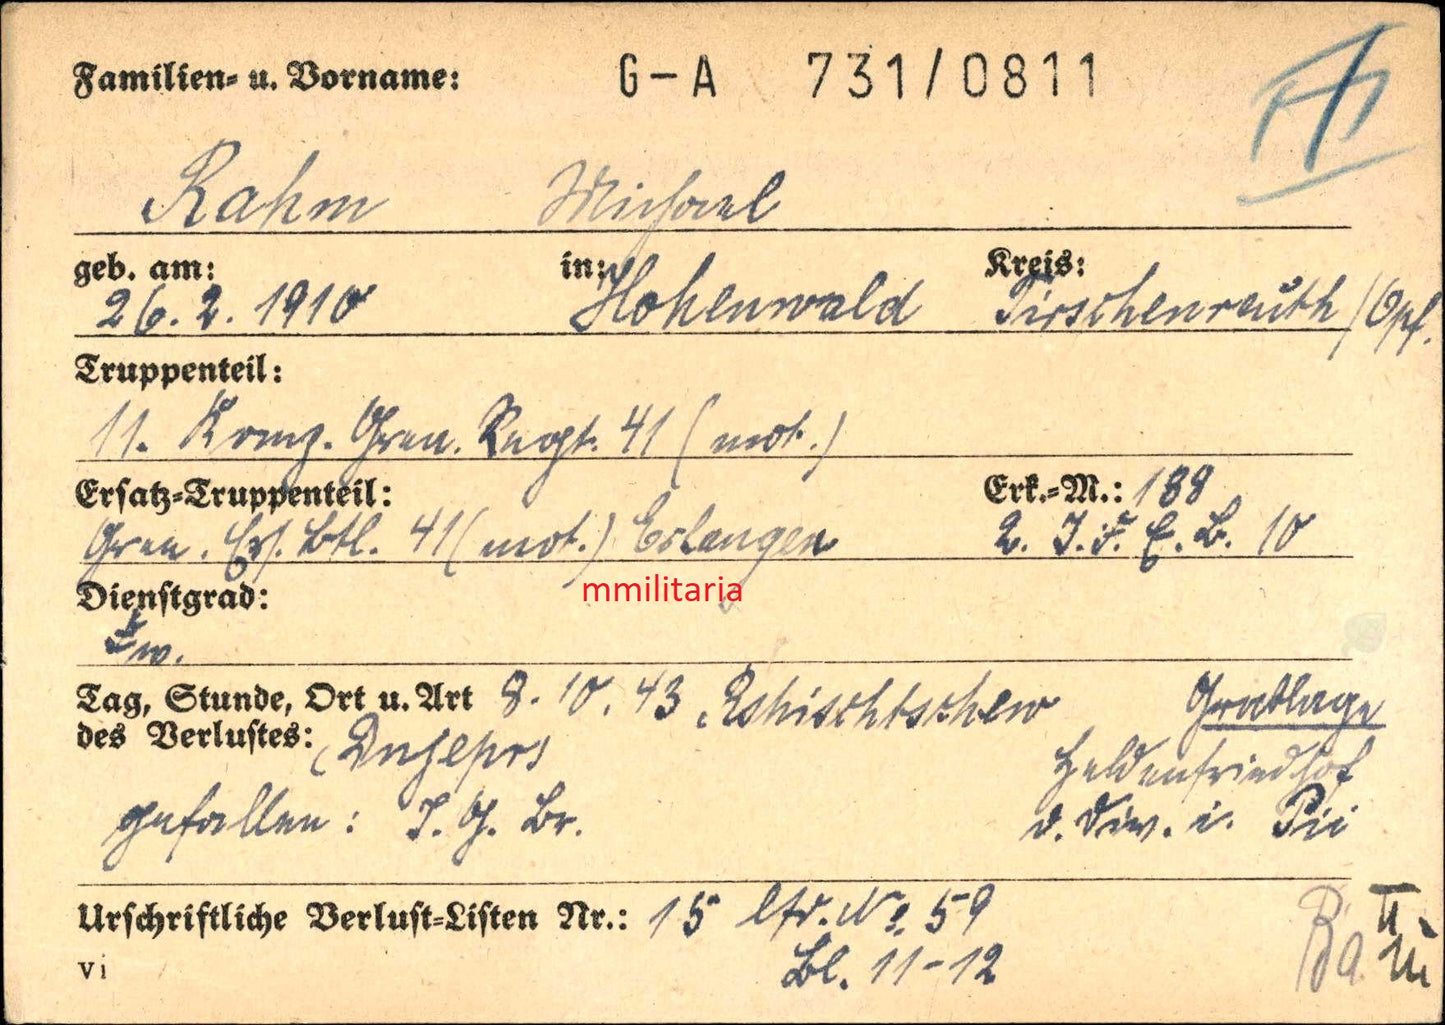 Familien- u. Vorname: G-A 731/0811
Rahm Michael
geb. am: in: Kreis:
26.2.1910 Hohenwald Tirschenreuth/Opf.
Truppenteil:
11. Gren. Regt. 41 (mot.)
Ersatz-Truppenteil: Erk.-M.: 188
Gren. Ers. Btl. 41 (mot.) Erlangen 2. J.F.E.B. 10
mmilitaria
Dienstgrad:
Tag, Stunde, Ort u. Art 8.10.43 Rshischtschew Grablage
des Verlustes: (Dnjepr) Heldenfriedhof
gefallen: J. G. Br. d. Div. i. Pii
Urschriftliche Verlust-Listen Nr.: 15 lfd. No. 59
Bl. 11-12
Vi